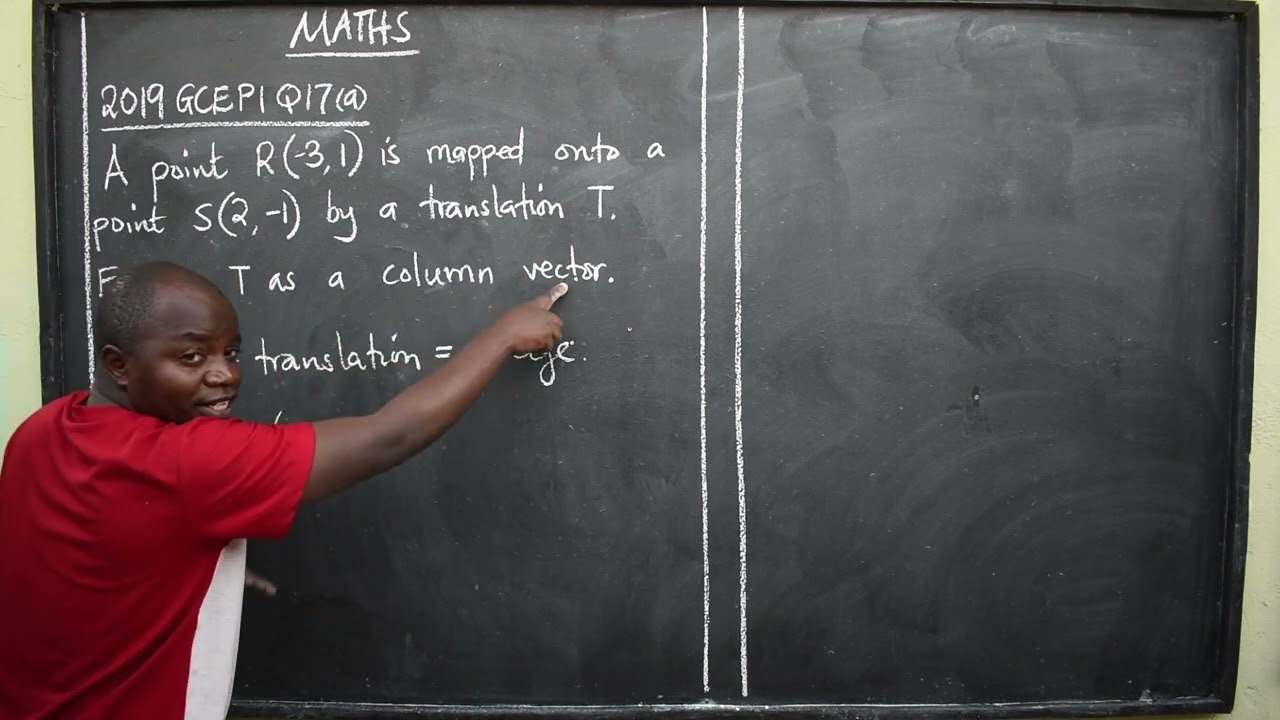 MATHS
2019 GCE P1 Q17(a)
A point R(-3, 1) is mapped onto a
point S(2, -1) by a translation T.
T as a column vector.
translation =
(